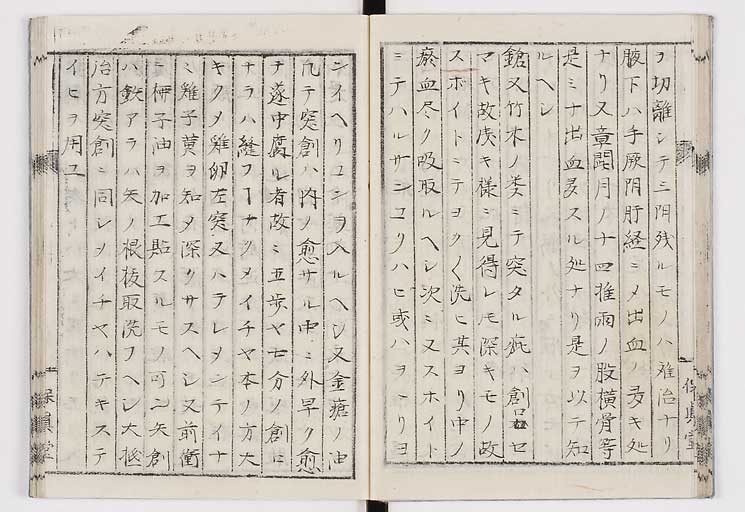 ヲ切離シテ三阴残ルモノハ难治ナリ
腋下ハ手厥阴肝経ニメ出血ノ多キ処
ナリ又章門月ノ十四推両ノ股横骨等
是ミナ出血多スル処ナリ是ヲ以テ知
ルヘシ
鎗又竹木ノ类ミテ突タル疵ハ創口セ
マキ故浅キ様ニ見得レモ深キモノ故
スホイトミテヨク〱洗ヒ其ヨリ中ノ
瘀血尽ク吸取ルヘシ次ミ又スホイト
ミテハルサンコリハヒ或ハヲヽリヨ
シイヘリユシヲ入ルヘシ又金瘡ノ油
凢テ突創ハ内ノ愈サル中ニ外早ク愈
テ遂中腐ル者故ミ五歩ヤ七分ノ創ニ
ナラハ縫フヿナクメイチヤ本ノ方大
キクメ雞卵左突又ハテレメンテイナ
ミ雉子黄ヲ知メ深クサスヘシ又前衝
ニ椰子油ヲ加エ貼スルモノ可ニ矢創
ハ鉃アラハ矢ノ根抜取洗フヘシ大抵
治方突創ニ同シメイチヤハテキステ
イヒヲ用ユ
保眞堂
保眞堂